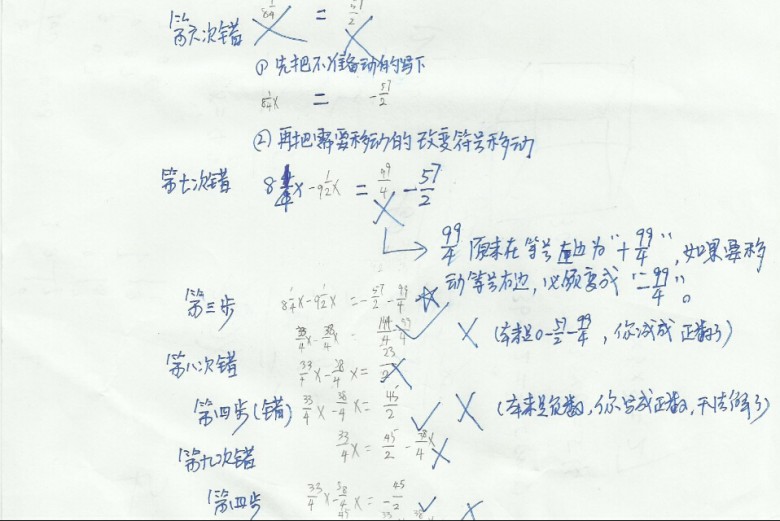 第六次错 8 1/4 = 57/2
① 先把不准备动的写下
8 1/4 x = -57/2
② 再把需要移动的改变符号移动
第七次错 8 1/4 x - 9 1/2 x = 99/4 - 57/2
99/4 原来在等号左边为“+99/4”，如果要移
动等号右边，必须变成“-99/4”。
第三步 8 1/4 x - 9 1/2 x = -57/2 - 99/4
33/4 x - 38/4 x (本来是0-57/2-99/4，你减成正数了)
第八次错 33/4 x - 38/4 x =
第四步(错) 33/4 x - 38/4 x = 45/2 (本来是负数，你写成正数，无法解了)
第九次错 33/4 x = 45/2 - 38/4 x
第四步 33/4 x - 38/4 x = -45/2